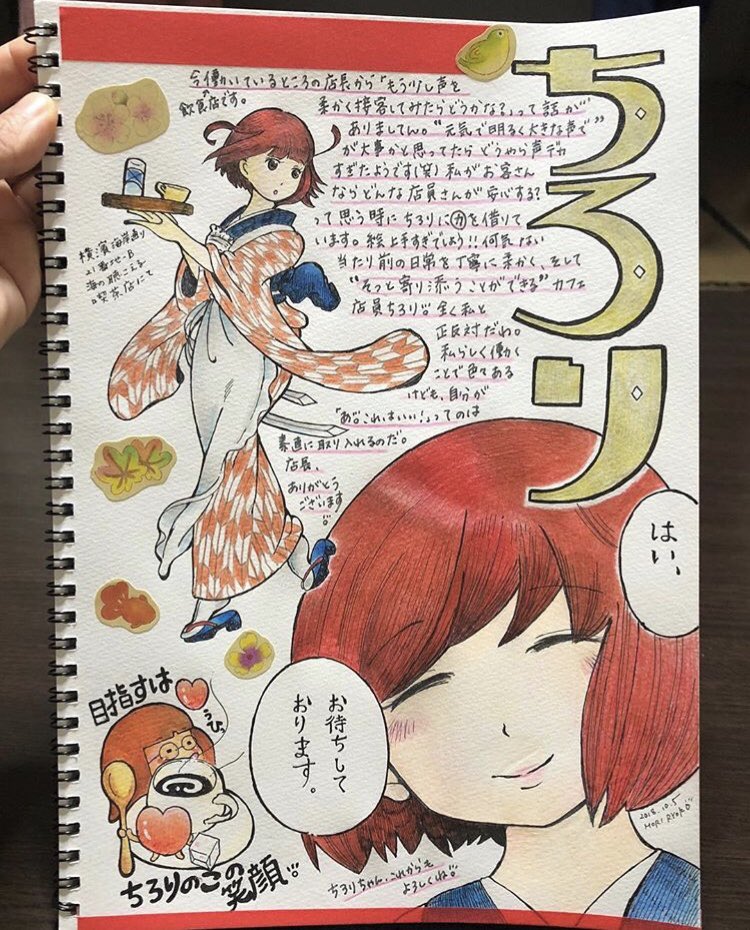 ちろり
今働いているところの店長から「もう少し声を
飲食店です。
柔かく接客してみたらどうかな?」って話が
ありましてん。"元気で明るく大きな声で"
が大事かと思ってたら どうやら声デカ
すぎたようです(笑) 私がお客さん
ならどんな店員さんが安心する?
って思う時に ちろりに力を借りて
います。絵上手すぎでしょう!!何気ない
当たり前の日常を丁寧に柔かく、そして
"そっと寄り添うことができる"カフェ
店員ちろり。全く私と
正反対だわ。
私らしく働く
ことで色てある
けども、自分が
「あ。これはいい!」ってのは
素直に取り入れるのだ。
店長、
ありがとう
ございます
横濱海岸通り
21番地-B
海の聴こえる
喫茶店にて
はい、
お待ちして
おります。
目指すは
えひっ
ちろりのこの
笑顔
ちろりちゃん、これからも
よろしくね
2018.10.5
MORI RYOKO